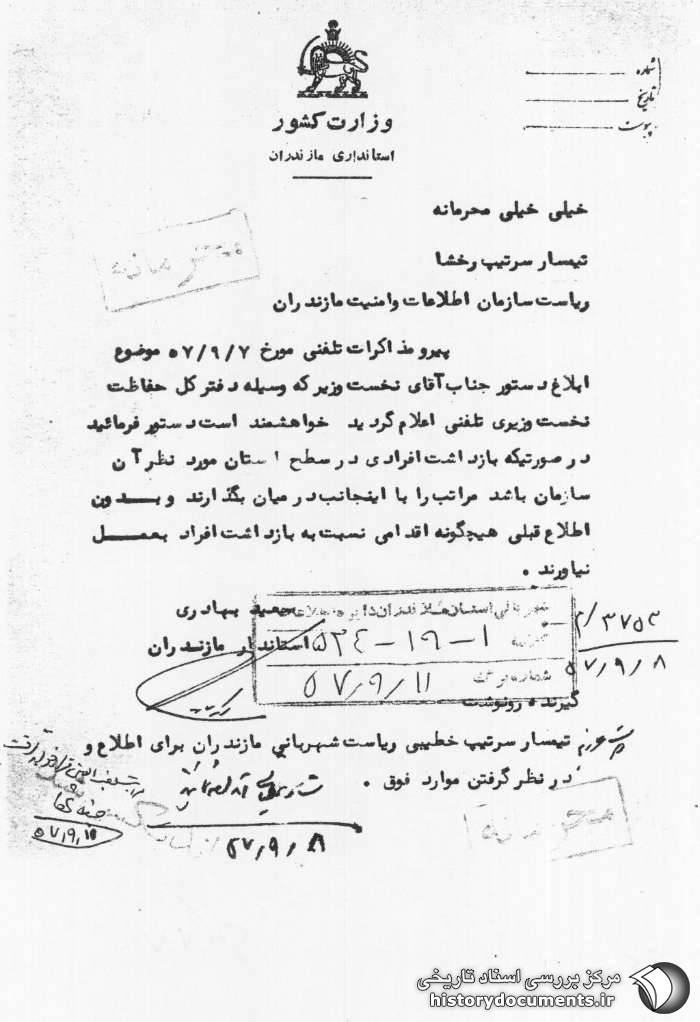 شماره
تاریخ
پیوست
وزارت کشور
استانداری مازندران
خیلی خیلی محرمانه
محرمانه
تیمسار سرتیپ رخشا
ریاست سازمان اطلاعات وامنیت مازندران
پیرو مذاکرات تلفنی مورخ ۵۷/۹/۷ موضوع
ابلاغ دستور جناب آقای نخست وزیر که وسیله دفتر کل حفاظت
نخست وزیری تلفنی اعلام گردید خواهشمند است دستور فرمائید
در صورتیکه بازداشت افرادی در سطح استان مورد نظر آن
سازمان باشد مراتب را با اینجانب در میان بگذارند و بدون
اطلاع قبلی هیچگونه اقدامی نسبت به بازداشت افراد بعمل
نیاورند .
بهادری
استاندار مازندران
شهربانی استان مازندران دایره اطلاعات
۵۲۴-۱۹-۱
شماره
۵۷/۹/۱۱
۳۷۵۳
۵۷/۹/۸
گیرنده رونوشت
تیمسار سرتیپ خطیبی ریاست شهربانی مازندران برای اطلاع و
در نظر گرفتن موارد فوق .
۵۷/۹/۸
۵۷/۹/۱۰
محرمانه
مرکز بررسی اسناد تاریخی
historydocuments.ir